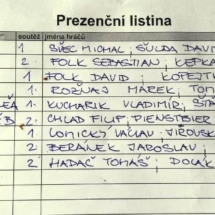 Prezenční listina
soutěž jména hráčů
1 ŠVEC MICHAL, ŠULDA DAVID
2 FOLK SEBASTIAN,
1 FOLK DAVID,
1 ROZŇAJ MAREK,
1 KUCHARIK VLADIMÍR,
2 CHLAD FILIP, PIENSTBIER
1 LOMICKÝ VÁCLAV, JIROUŠ
2 BERÁNEK JAROSLAV,
2 HADAČ TOMÁŠ,